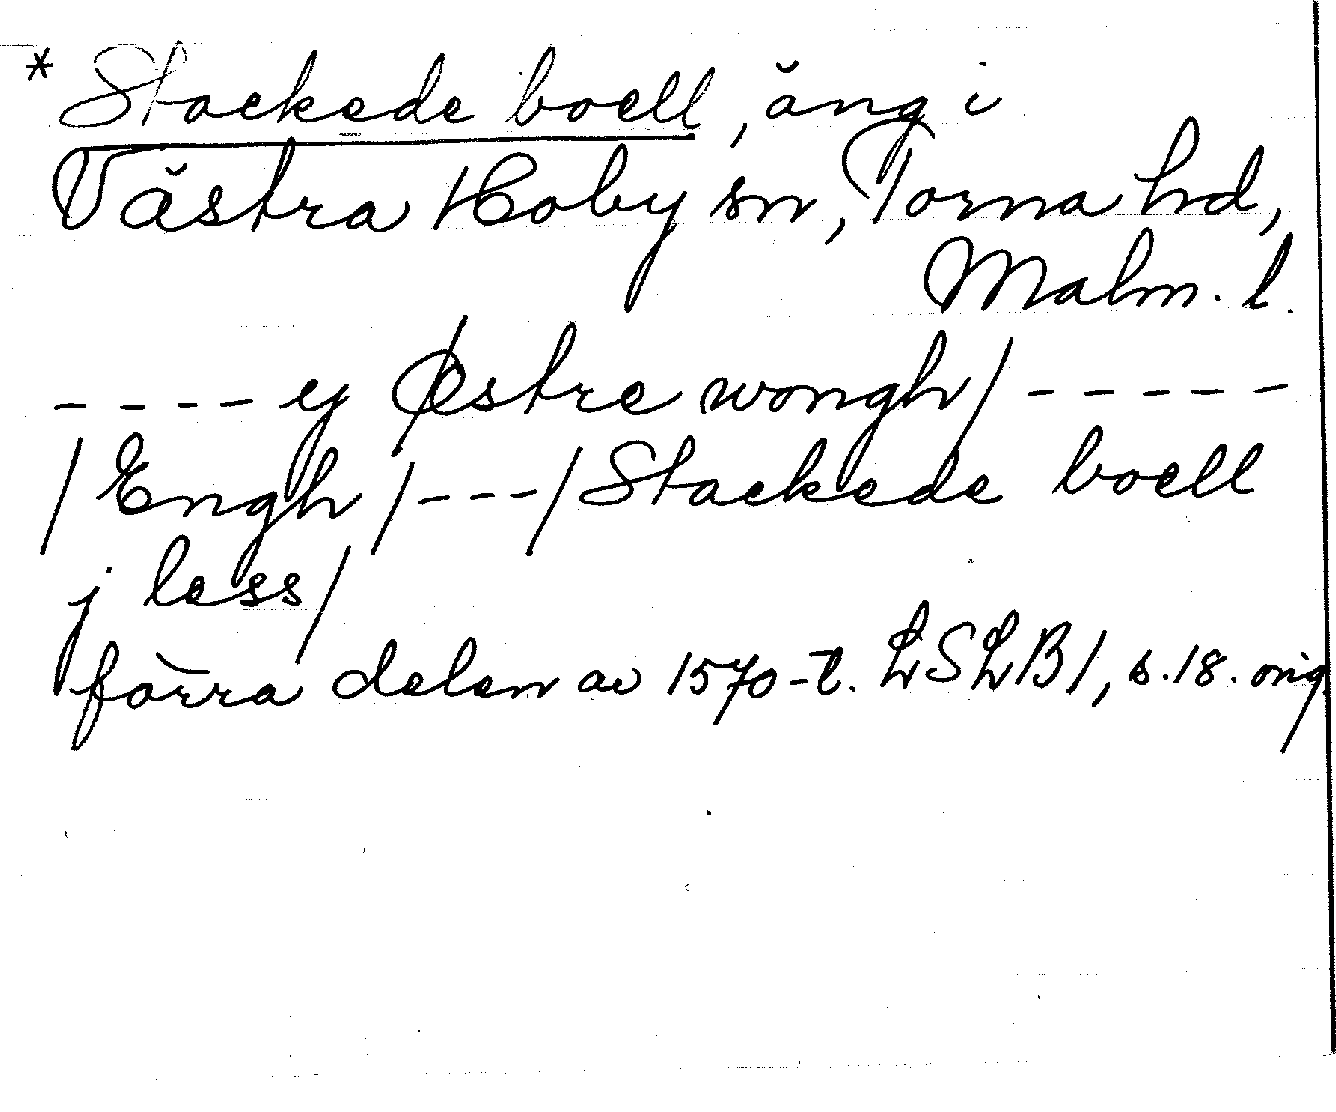 * Stackede boell, äng i
Västra Hoby sn, Torna hd,
Malm. l.
- - - - ey Østre wongh/ - - - - -
/Engh/ - - - /Stackede boell
j less/
förra delen av 1570-t. LSLB1, s.18. orig.